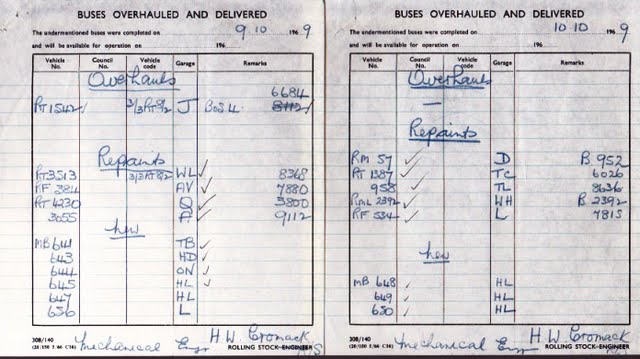 BUSES OVERHAULED AND DELIVERED
The undermentioned buses were completed on 9 10 1969
and will be available for operation on 196
Vehicle No. Council No. Vehicle code Garage Remarks
Overhauls
6684
RT1542 ✓ 3/3RT8/2 J BoS 4
Repaints
RT3513 3/3RT8/2 WL ✓ 8368
RF 381 AV ✓ 7880
RT4230 Q ✓ 3800
3055 A ✓ 9112
New
MB 641 TB ✓
643 HD ✓
644 ON ✓
645 HL ✓
647 HL
656 L
308/140
Mechanical Engr H.W Cromack
ROLLING STOCK ENGINEER
BUSES OVERHAULED AND DELIVERED
The undermentioned buses were completed on 10-10 1969
and will be available for operation on 196
Vehicle No. Council No. Vehicle code Garage Remarks
Overhauls
—
Repaints
RM 57 ✓ D B 952
RT 1387 ✓ TC 6026
958 ✓ TL 8636
RML 2392 ✓ WH B 2392
RF 534 ✓ L 7815
New
MB 648 ✓ HL
649 ✓ HL
650 ✓ HL
308/140
Mechanical Engr H.W Cromack
ROLLING STOCK ENGINEER